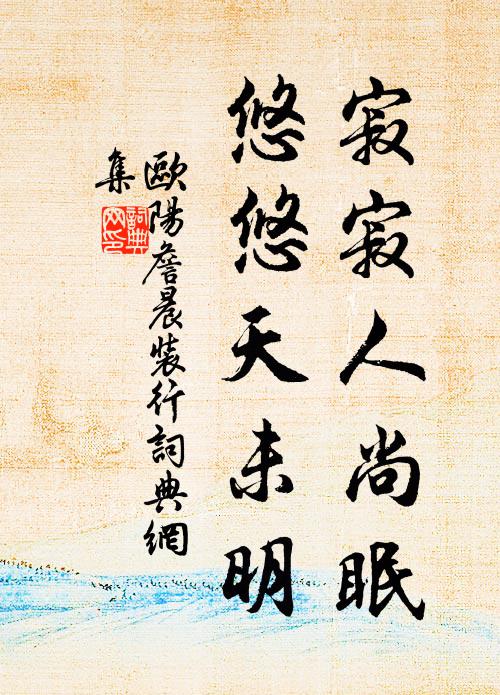 寂寂人尚眠
悠悠天未明
歐陽詹晨裝行詞典網
集
詞典
网印